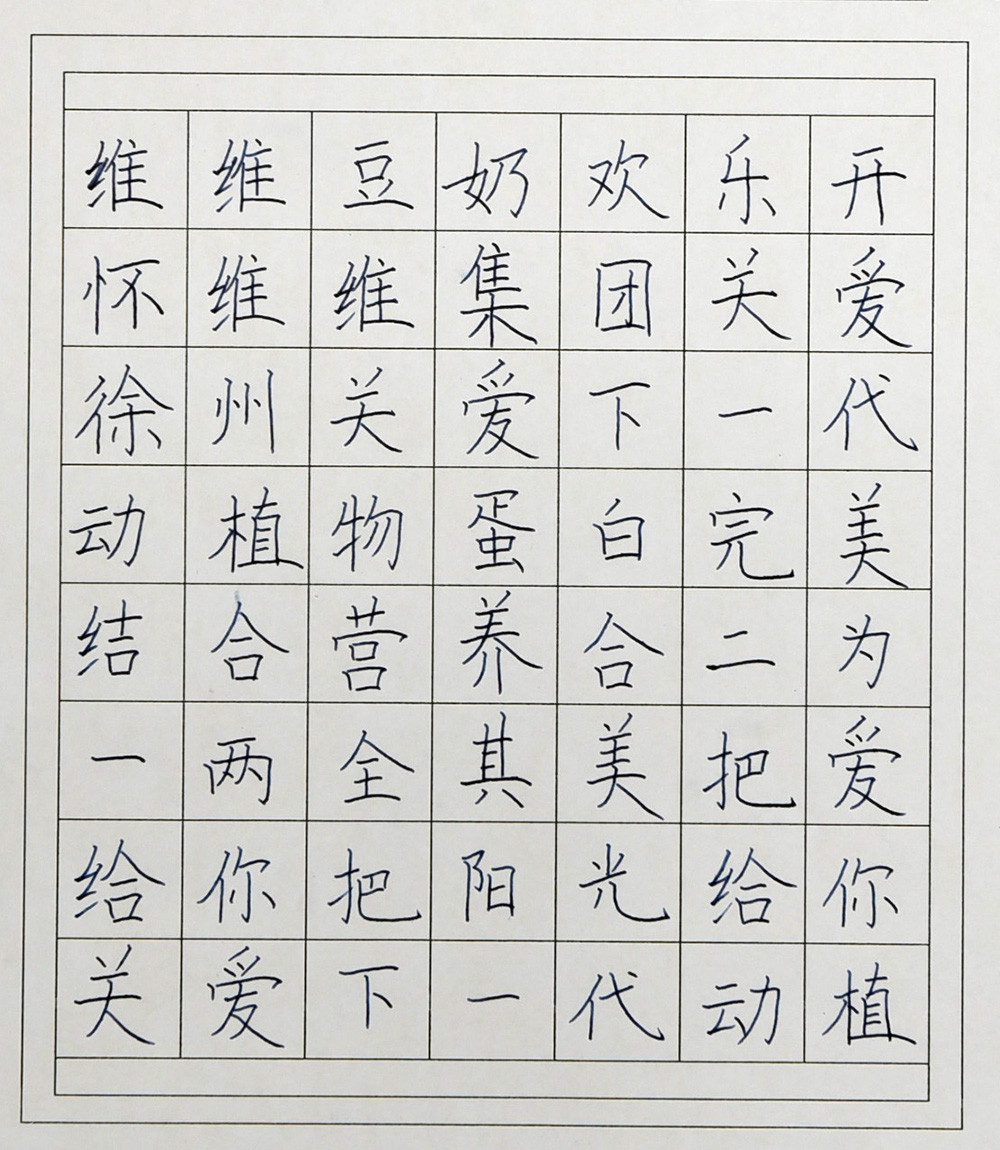 维维豆奶欢乐开
怀维维集团关爱
徐州关爱下一代
动植物蛋白完美
结合营养合二为
一两全其美把爱
给你把阳光给你
关爱下一代动植